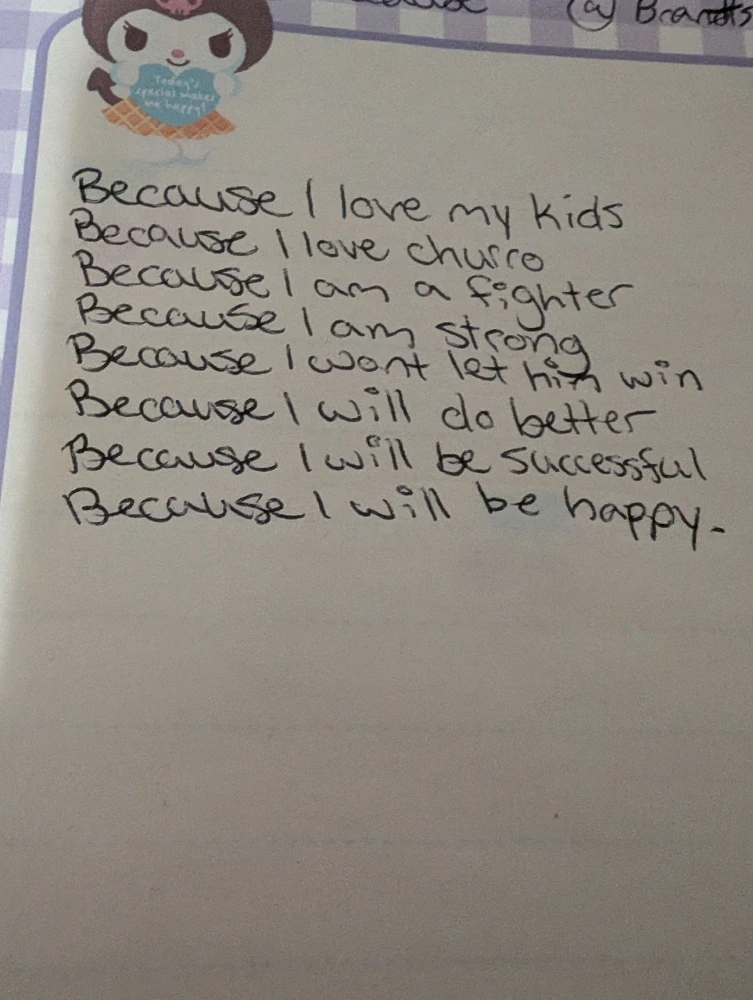 @ Brandts
Today's
special makes
me happy!
Because I love my kids
Because I love churro
Because I am a fighter
Because I am strong
Because I wont let him win
Because I will do better
Because I will be successful
Because I will be happy.